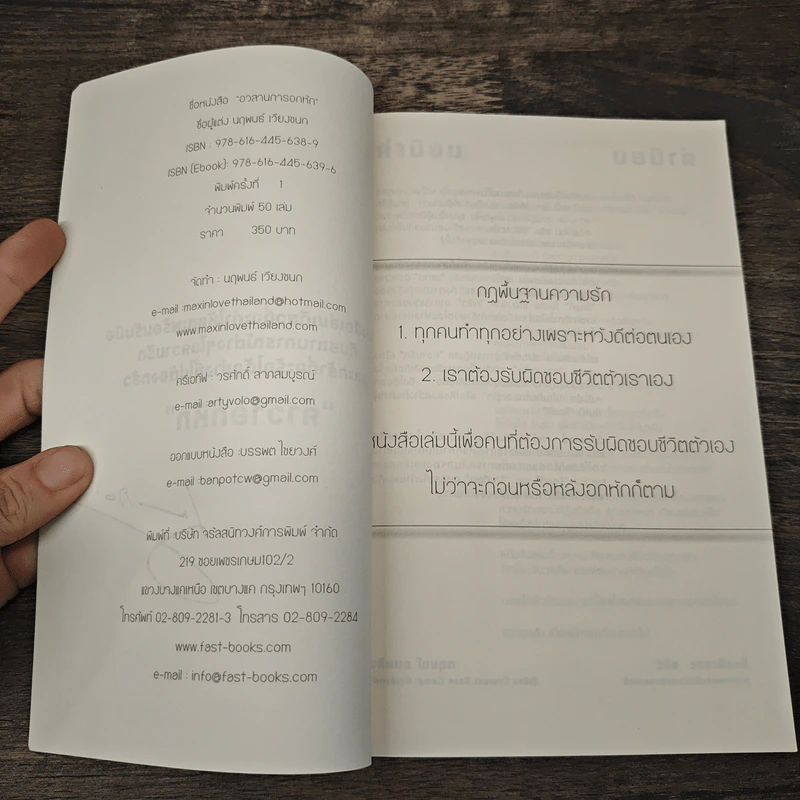 ชื่อหนังสือ "อวสานการอกหัก"
ชื่อผู้แต่ง นฤพนธ์ เวียงชนก
ISBN : 978-616-445-638-9
ISBN (Ebook): 978-616-445-639-6
พิมพ์ครั้งที่ 1
จำนวนพิมพ์ 50 เล่ม
ราคา 350 บาท
จัดทำ : นฤพนธ์ เวียงชนก
e-mail :maxinlovethailand@hotmail.com
www.maxinlovethailand.com
ครีเอทีฟ : วรศักดิ์ ลาภสมบูรณ์
e-mail :artyvolo@gmail.com
ออกแบบหนังสือ :บรรพต ไชยวงค์
e-mail :banpotcw@gmail.com
พิมพ์ที่ :บริษัท จรัลสนิทวงศ์การพิมพ์ จำกัด
219 ซอยเพชรเกษม102/2
แขวงบางแคเหนือ เขตบางแค กรุงเทพฯ 10160
โทรศัพท์ 02-809-2281-3 โทรสาร 02-809-2284
www.fast-books.com
e-mail : info@fast-books.com
กฎพื้นฐานความรัก
1. ทุกคนทำทุกอย่างเพราะหวังดีต่อตนเอง
2. เราต้องรับผิดชอบชีวิตตัวเราเอง
หนังสือเล่มนี้เพื่อคนที่ต้องการรับผิดชอบชีวิตตัวเอง
ไม่ว่าจะก่อนหรือหลังอกหักก็ตาม